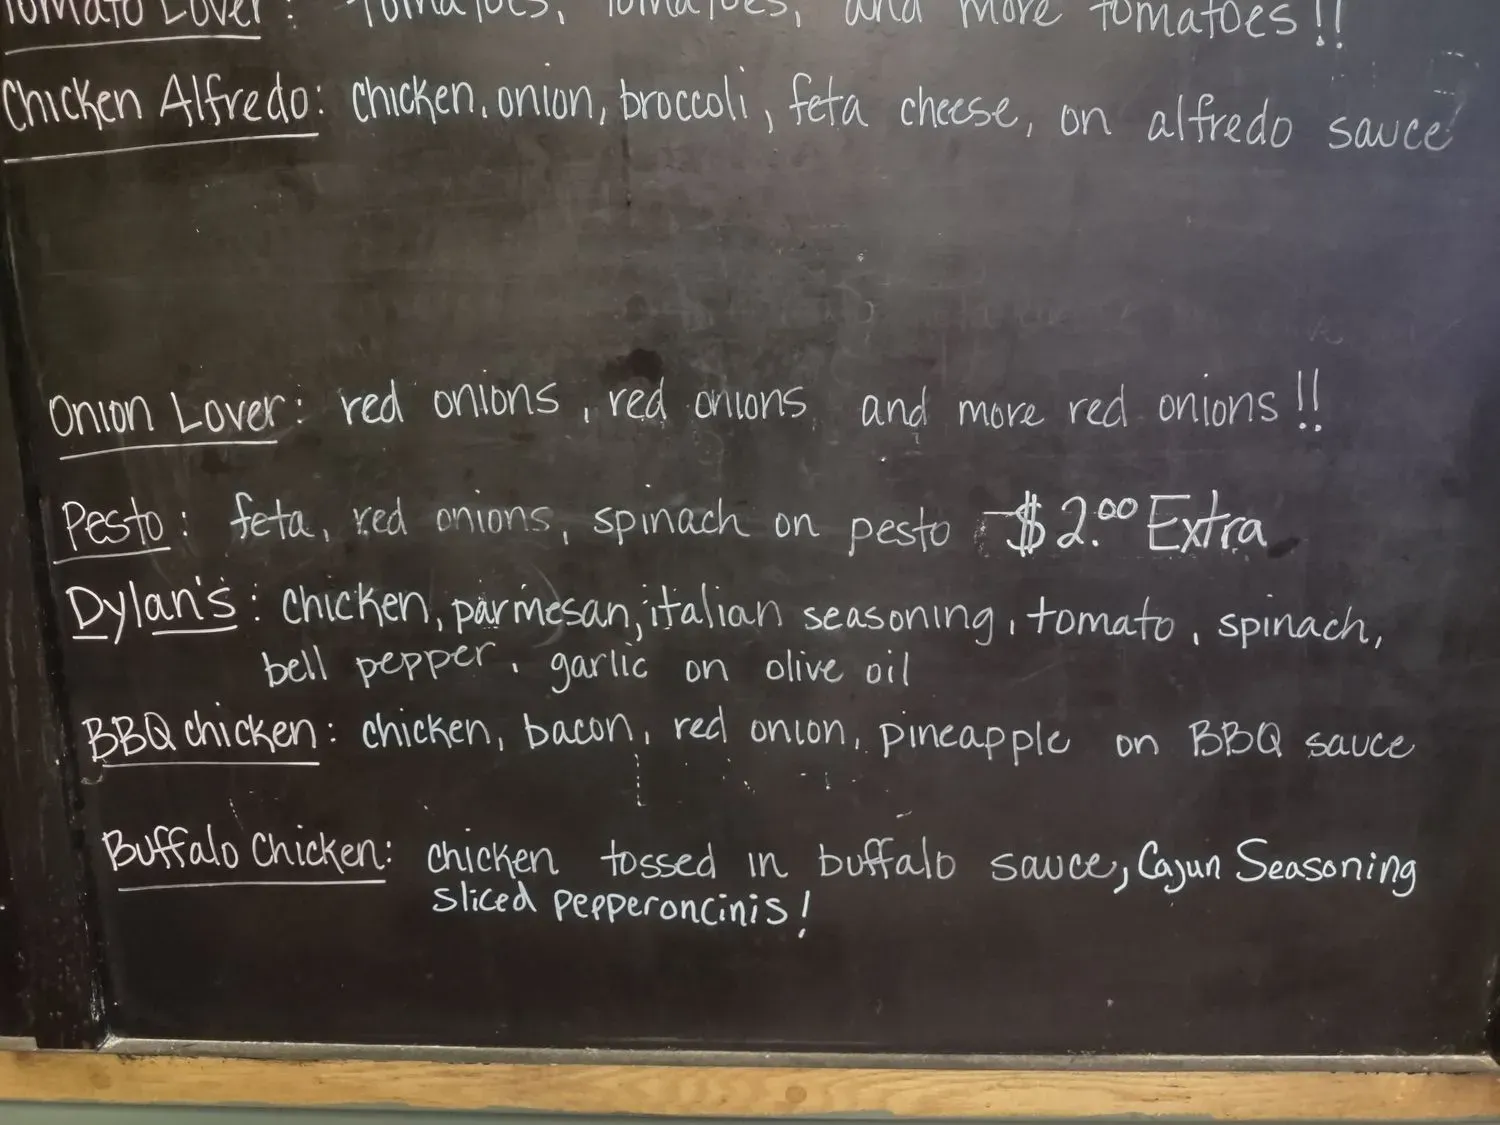 Tomato Lover: Tomatoes, Tomatoes, and more tomatoes!!
Chicken Alfredo: chicken, onion, broccoli, feta cheese, on alfredo sauce
Onion Lover: red onions, red onions, and more red onions!!
Pesto: feta, red onions, spinach on pesto - $2.00 Extra
Dylan's: chicken, parmesan, italian seasoning, tomato, spinach,
bell pepper, garlic on olive oil
BBQ chicken: chicken, bacon, red onion, pineapple on BBQ sauce
Buffalo Chicken: chicken tossed in buffalo sauce, Cajun Seasoning
sliced pepperoncinis!